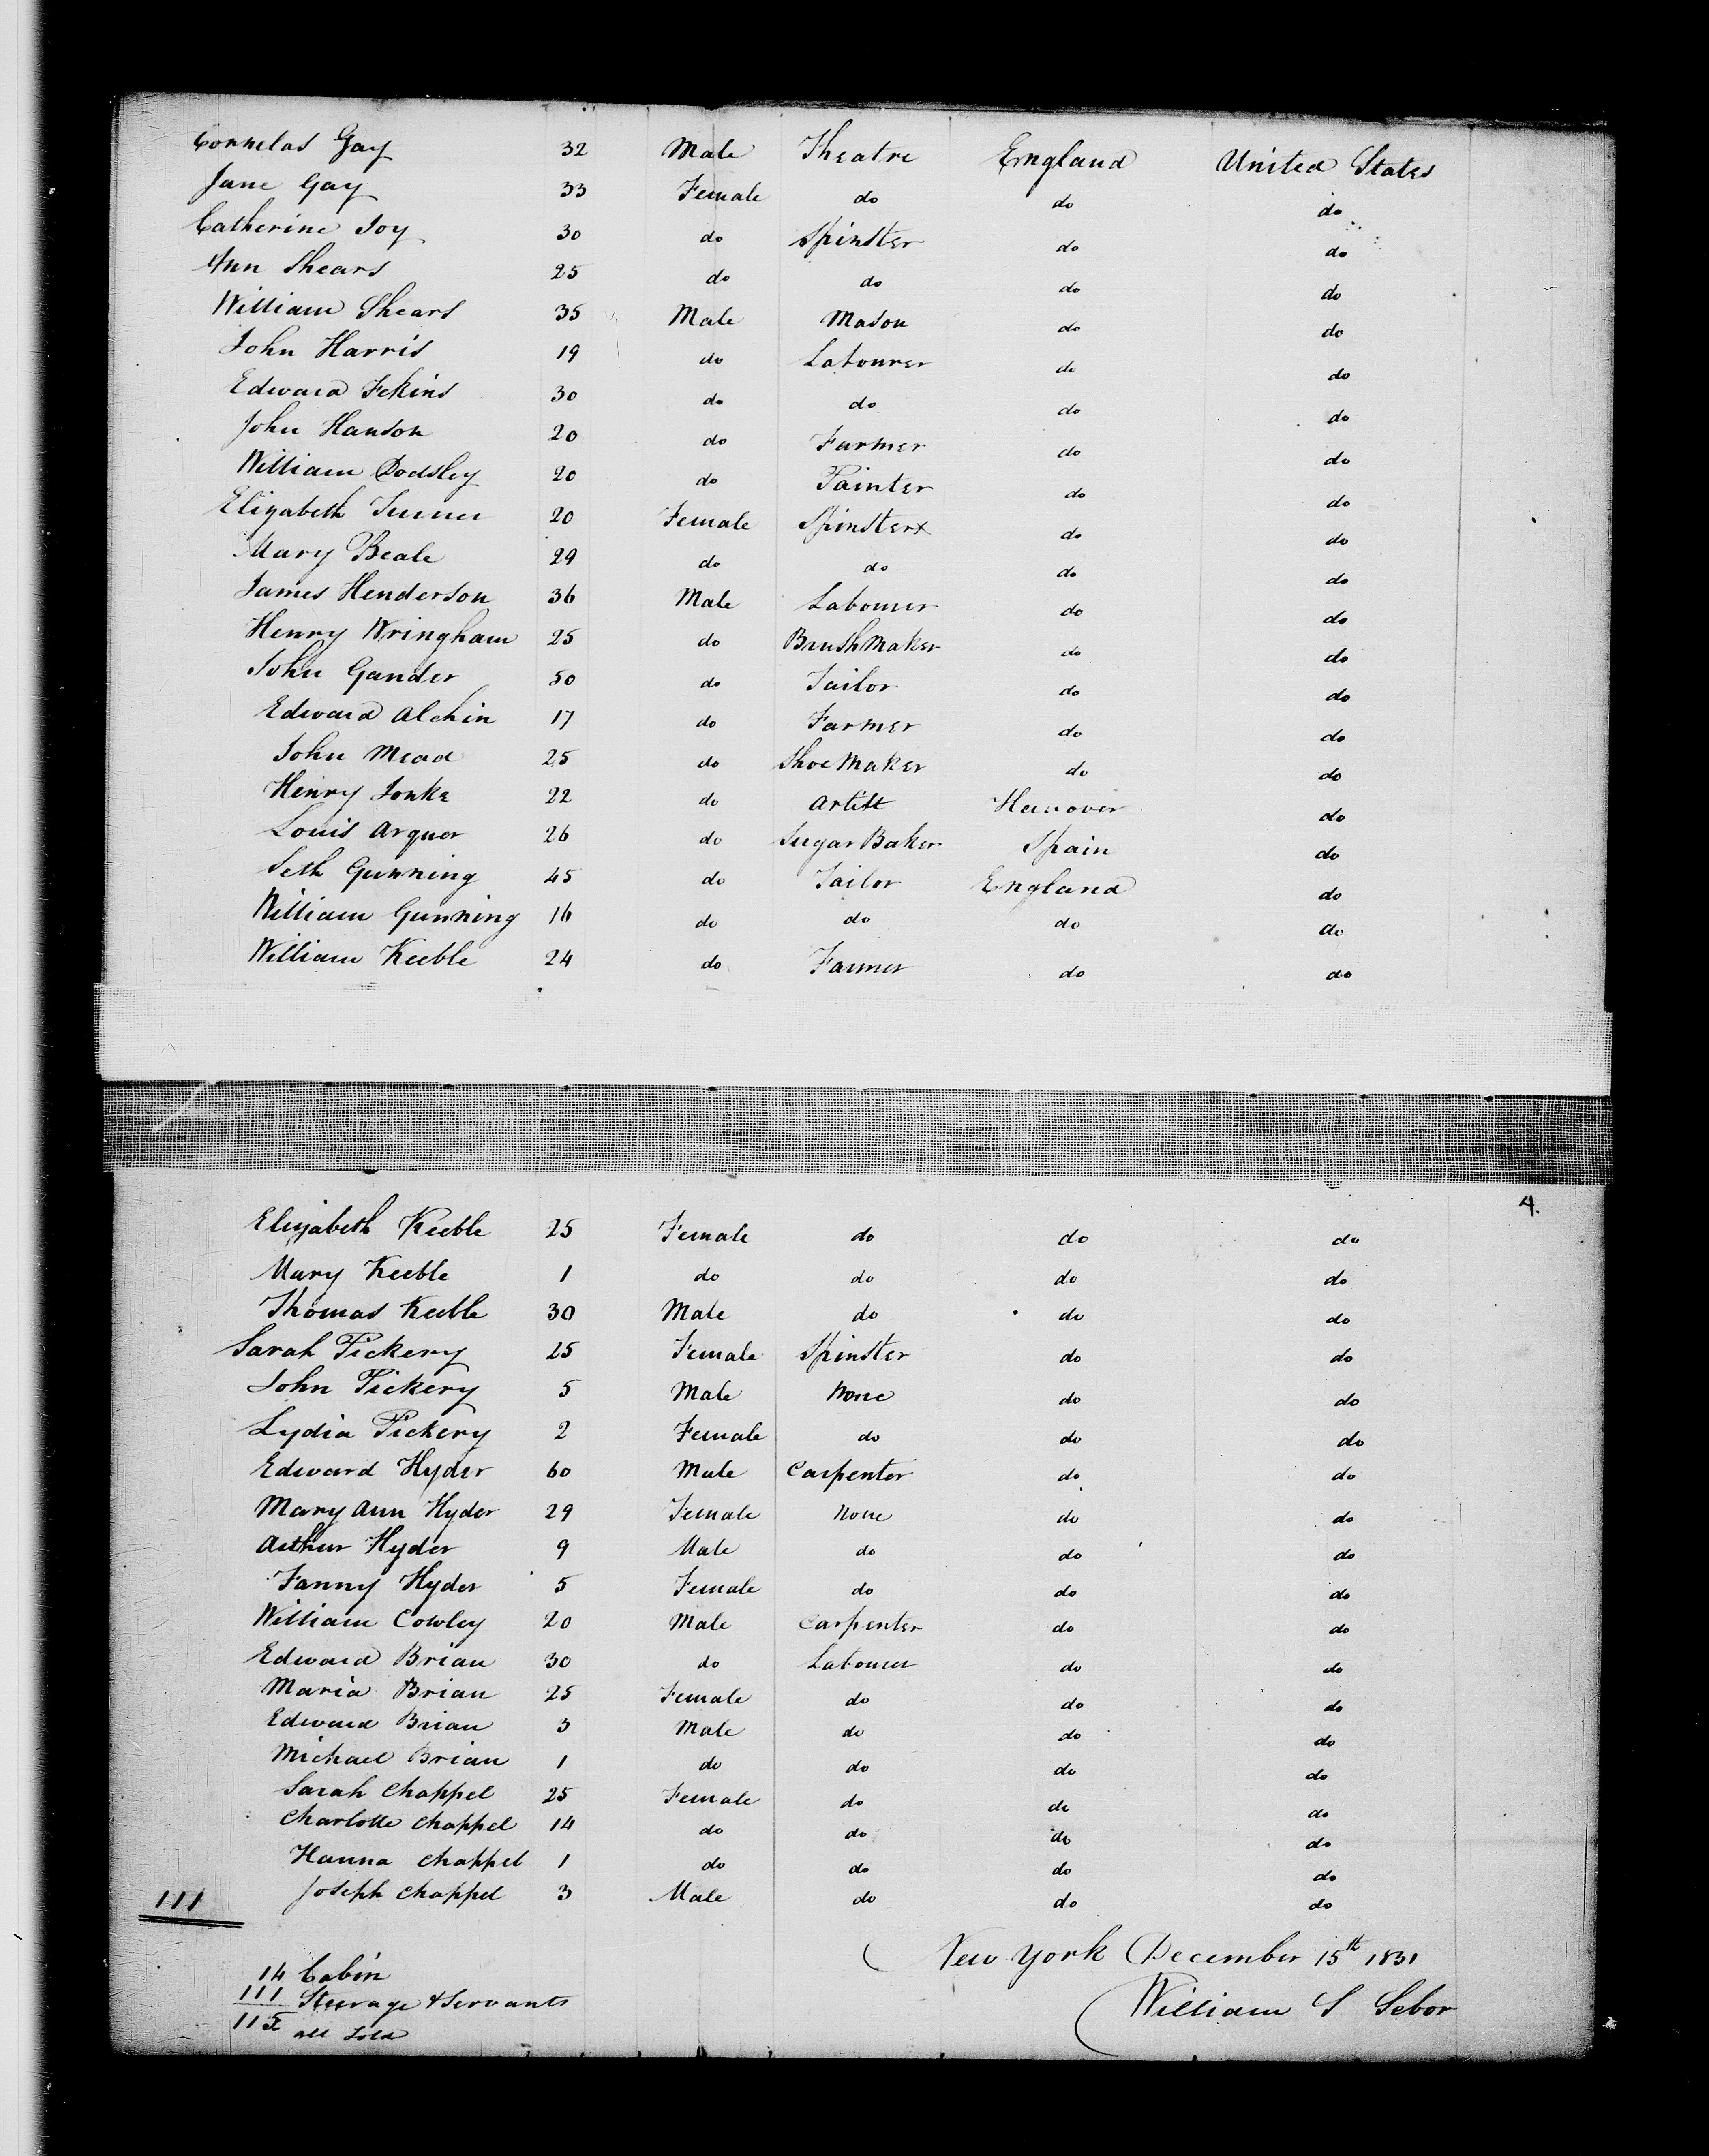 Cornelas Gay 32 Male Theatre England United States
Jane Gay 33 Female do do do
Catherine Joy 30 do Spinster do do
Ann Shears 25 do do do do
William Shears 35 Male Mason do do
John Harris 19 do Labourer do do
Edward Jekins 30 do do do do
John Hanson 20 do Farmer do do
William Dodsley 20 do Painter do do
Elizabeth 20 Female Spinster do do
Mary Beale 29 do do do do
James Henderson 36 Male Labourer do do
Henry Wringham 25 do Brush Maker do do
John Gander 50 do Tailor do do
Edward Alchin 17 do Farmer do do
John Mead 25 do Shoe Maker do do
Henry Jonke 22 do Artist Hanover do
Louis Arquer 26 do Sugar Baker Spain do
Seth Gunning 45 do Tailor England do
William Gunning 16 do do do do
William Keeble 24 do Farmer do do
4.
Elizabeth Keeble 25 Female do do do
Mary Keeble 1 do do do do
Thomas Keeble 30 Male do do do
Sarah Pickery 25 Female Spinster do do
John Pickery 5 Male None do do
Lydia Pickery 2 Female do do do
Edward Hyder 60 Male Carpenter do do
Mary Ann Hyder 29 Female None do do
Arthur Hyder 9 Male do do do
Fanny Hyder 5 Female do do do
William Cowley 20 Male Carpenter do do
Edward Brian 30 do Labourer do do
Maria Brian 25 Female do do do
Edward Brian 3 Male do do do
Michael Brian 1 do do do do
Sarah Chappel 25 Female do do do
Charlotte Chappel 14 do do do do
Hanna Chappel 1 do do do do
111 Joseph Chappel 3 Male do do do
New York December 15th 1831
14 Cabin
111 Steerage & Servants
William S Sebor
115 all Told